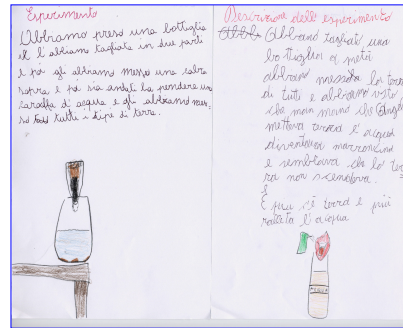 Esperimento
Abbiamo preso una bottiglia
e l'abbiamo tagliata in due parti
e poi gli abbiamo messo una calza
sopra e poi sia andati ha prendere una
caraffa d'acqua e gli abbiamo mes-
so tutti i tipi di terra.
Descrizione dell'esperimento
Abbiamo tagliat una
bottiglia a metà
abbiamo messo la terra
di tutti e abbiamo visto
che man mano che
metteva ancora l'acqua
diventava marroncina
e sembrava che la ter
ra non scendeva.
E
E più c'è terra e più
rallenta l'acqua